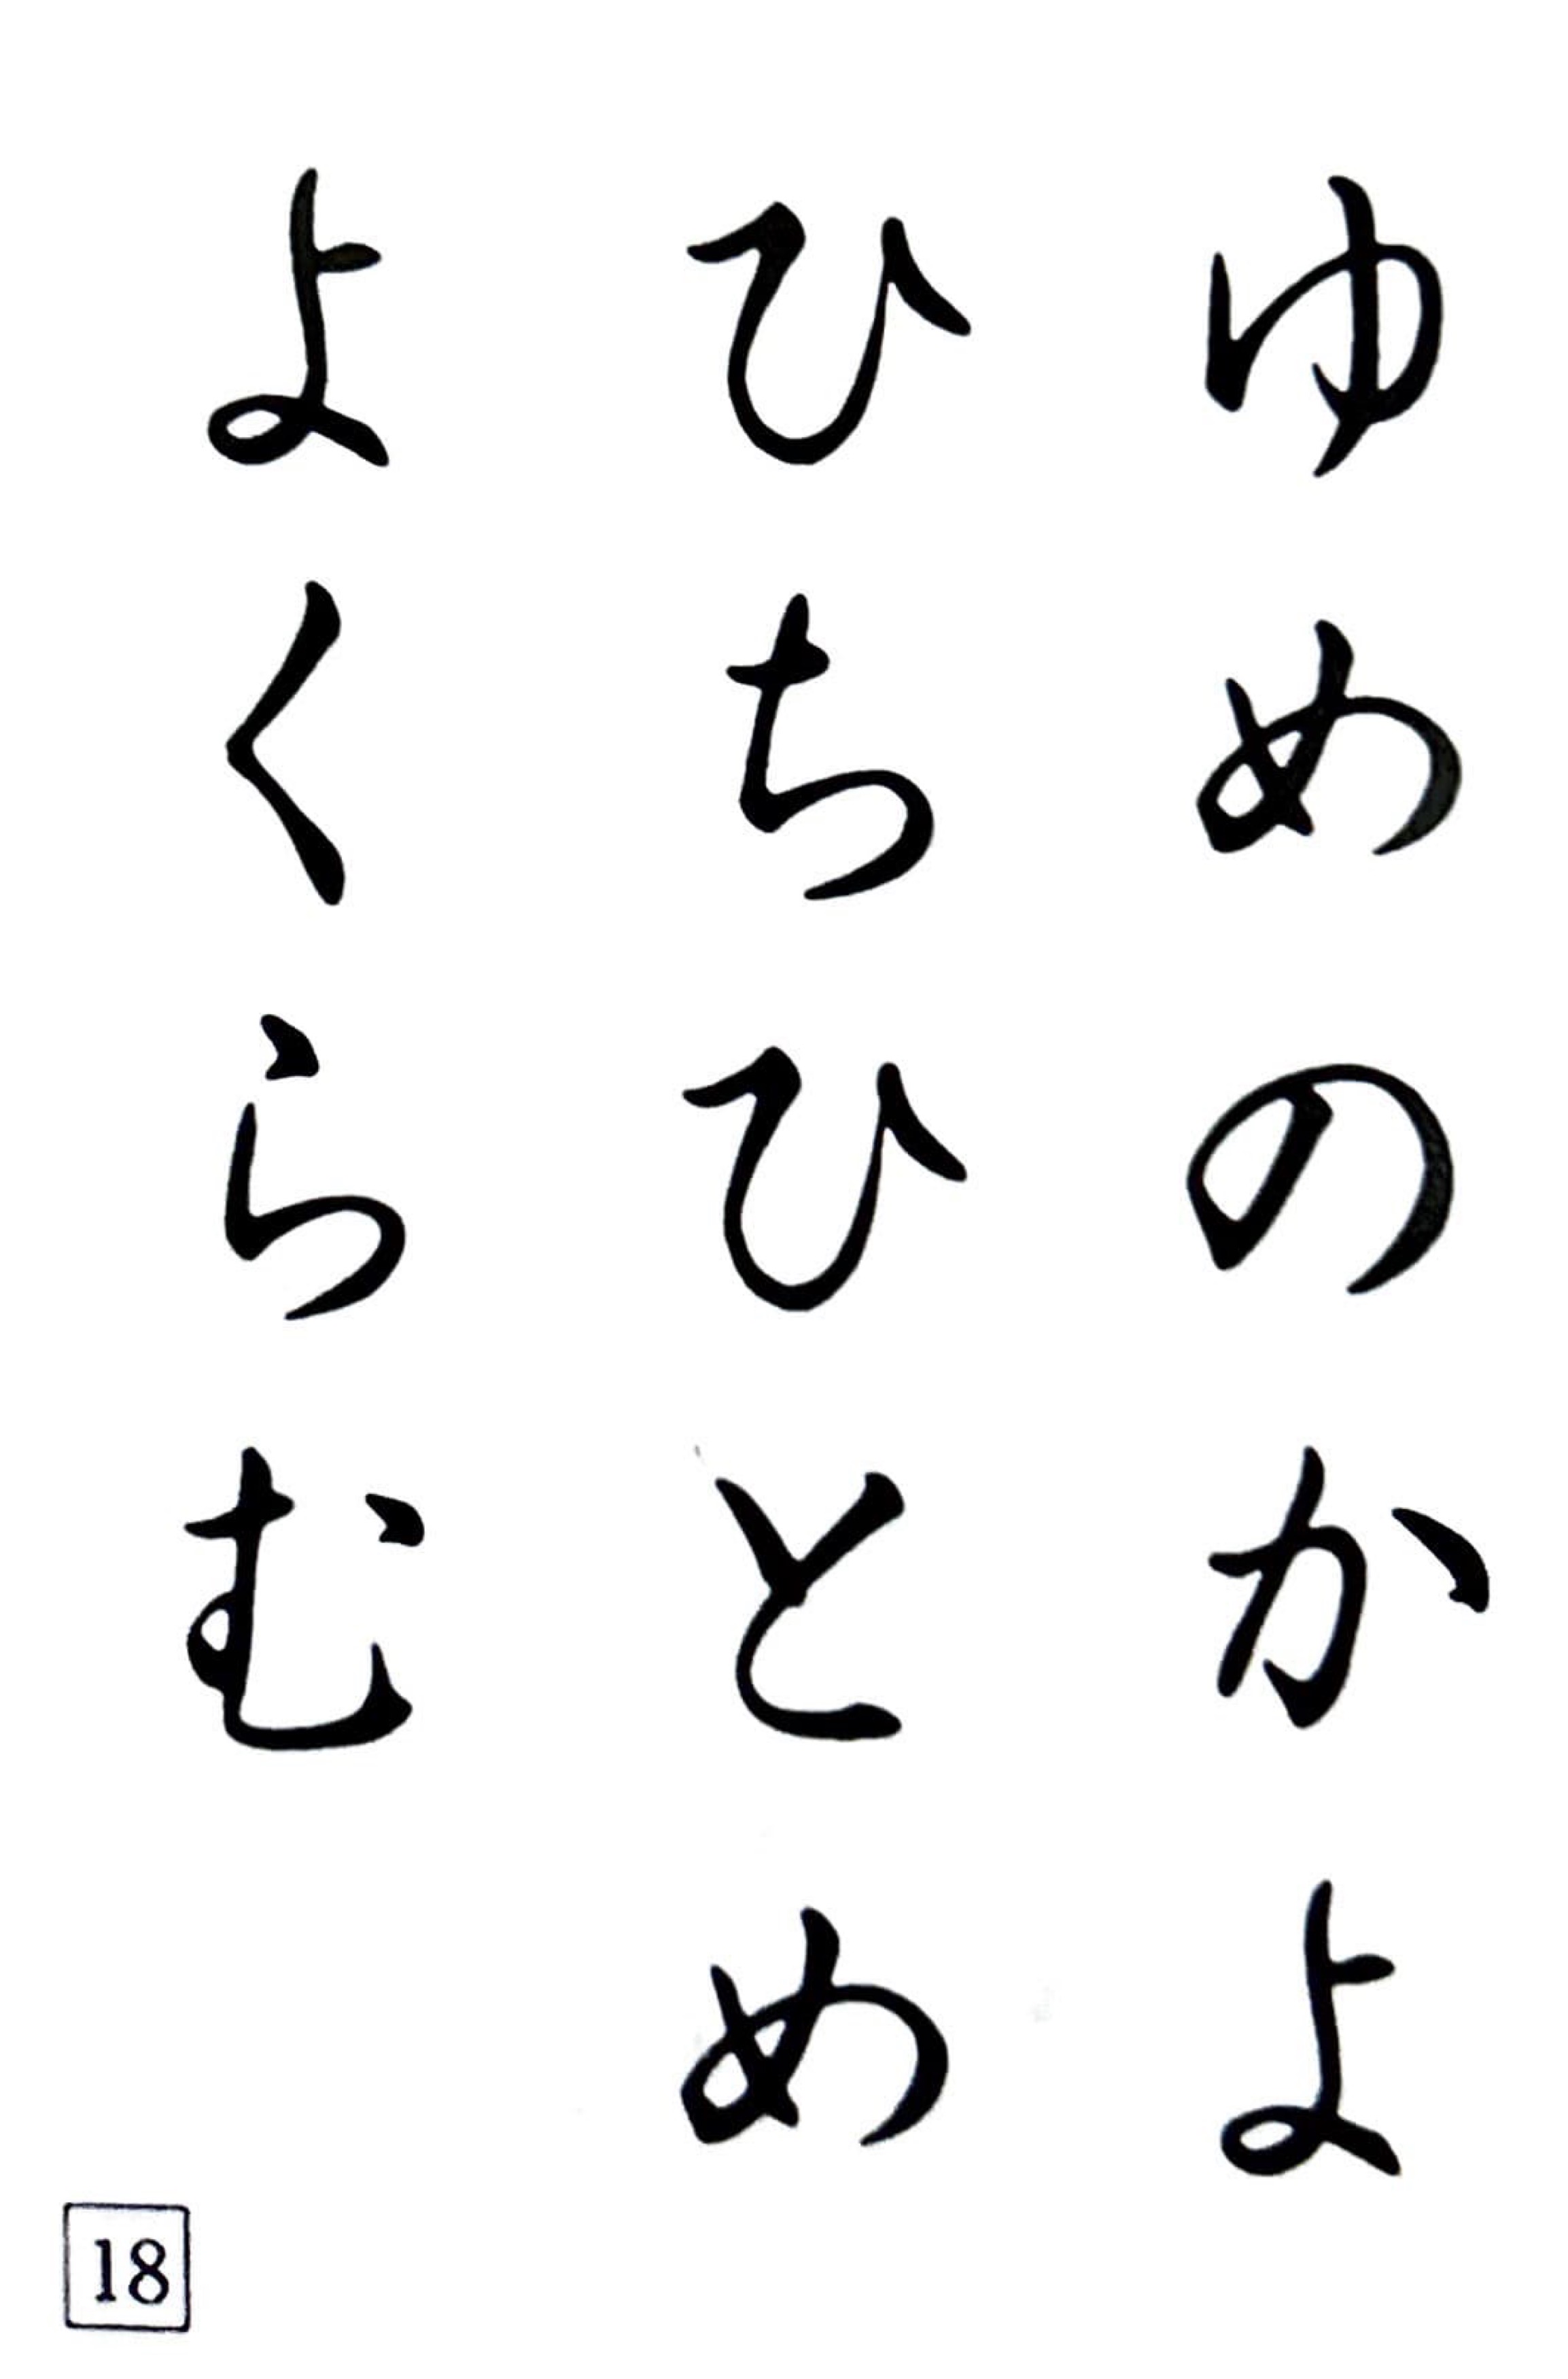 ゆめのかよ
ひちひとめ
よくらむ
18